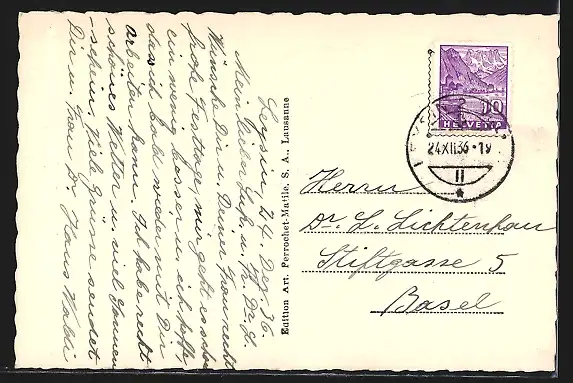 Leysin, 24. Dez. 36.
Mein lieber Luk. u. Fr. Dr. L.
Wünsche Dir u. Deiner Frau recht
frohe Festtage, mir geht es schon
ein wenig besser u. ich hoffe,
dass ich bald wieder mit Dir
arbeiten kann. Ich habe recht
schönes Wetter u. viel Sonnen-
schein. Viele Grüsse sendet
Dir u. Frau Dr. Hans Waldi
Edition Art. Perrochet-Matile, S. A., Lausanne
10
HELVETIA
LEYSIN
24.XII.36-19
II
Herrn
Dr. L. Lichtenhan
Stiftgasse 5
Basel